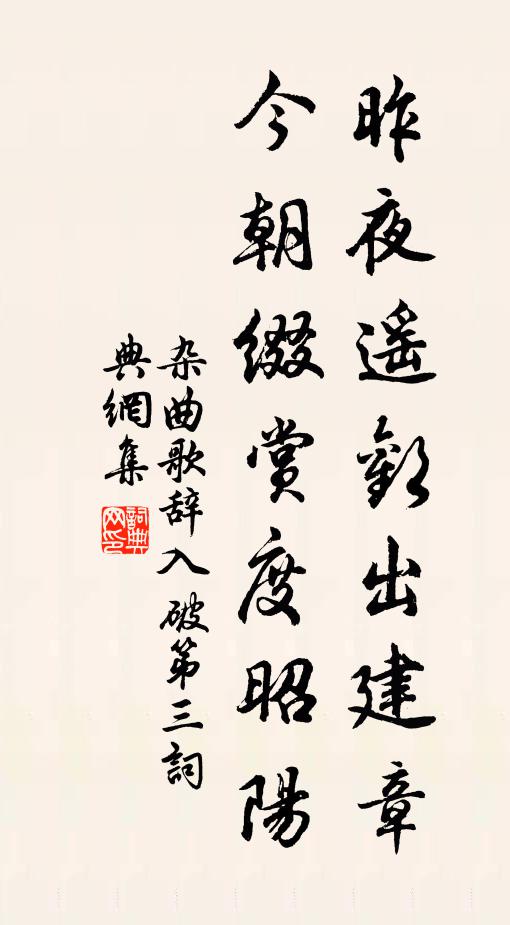 昨夜遙歡出建章
今朝綴賞度昭陽
杂曲歌辞入破第三詞
典網集
詞典
网印